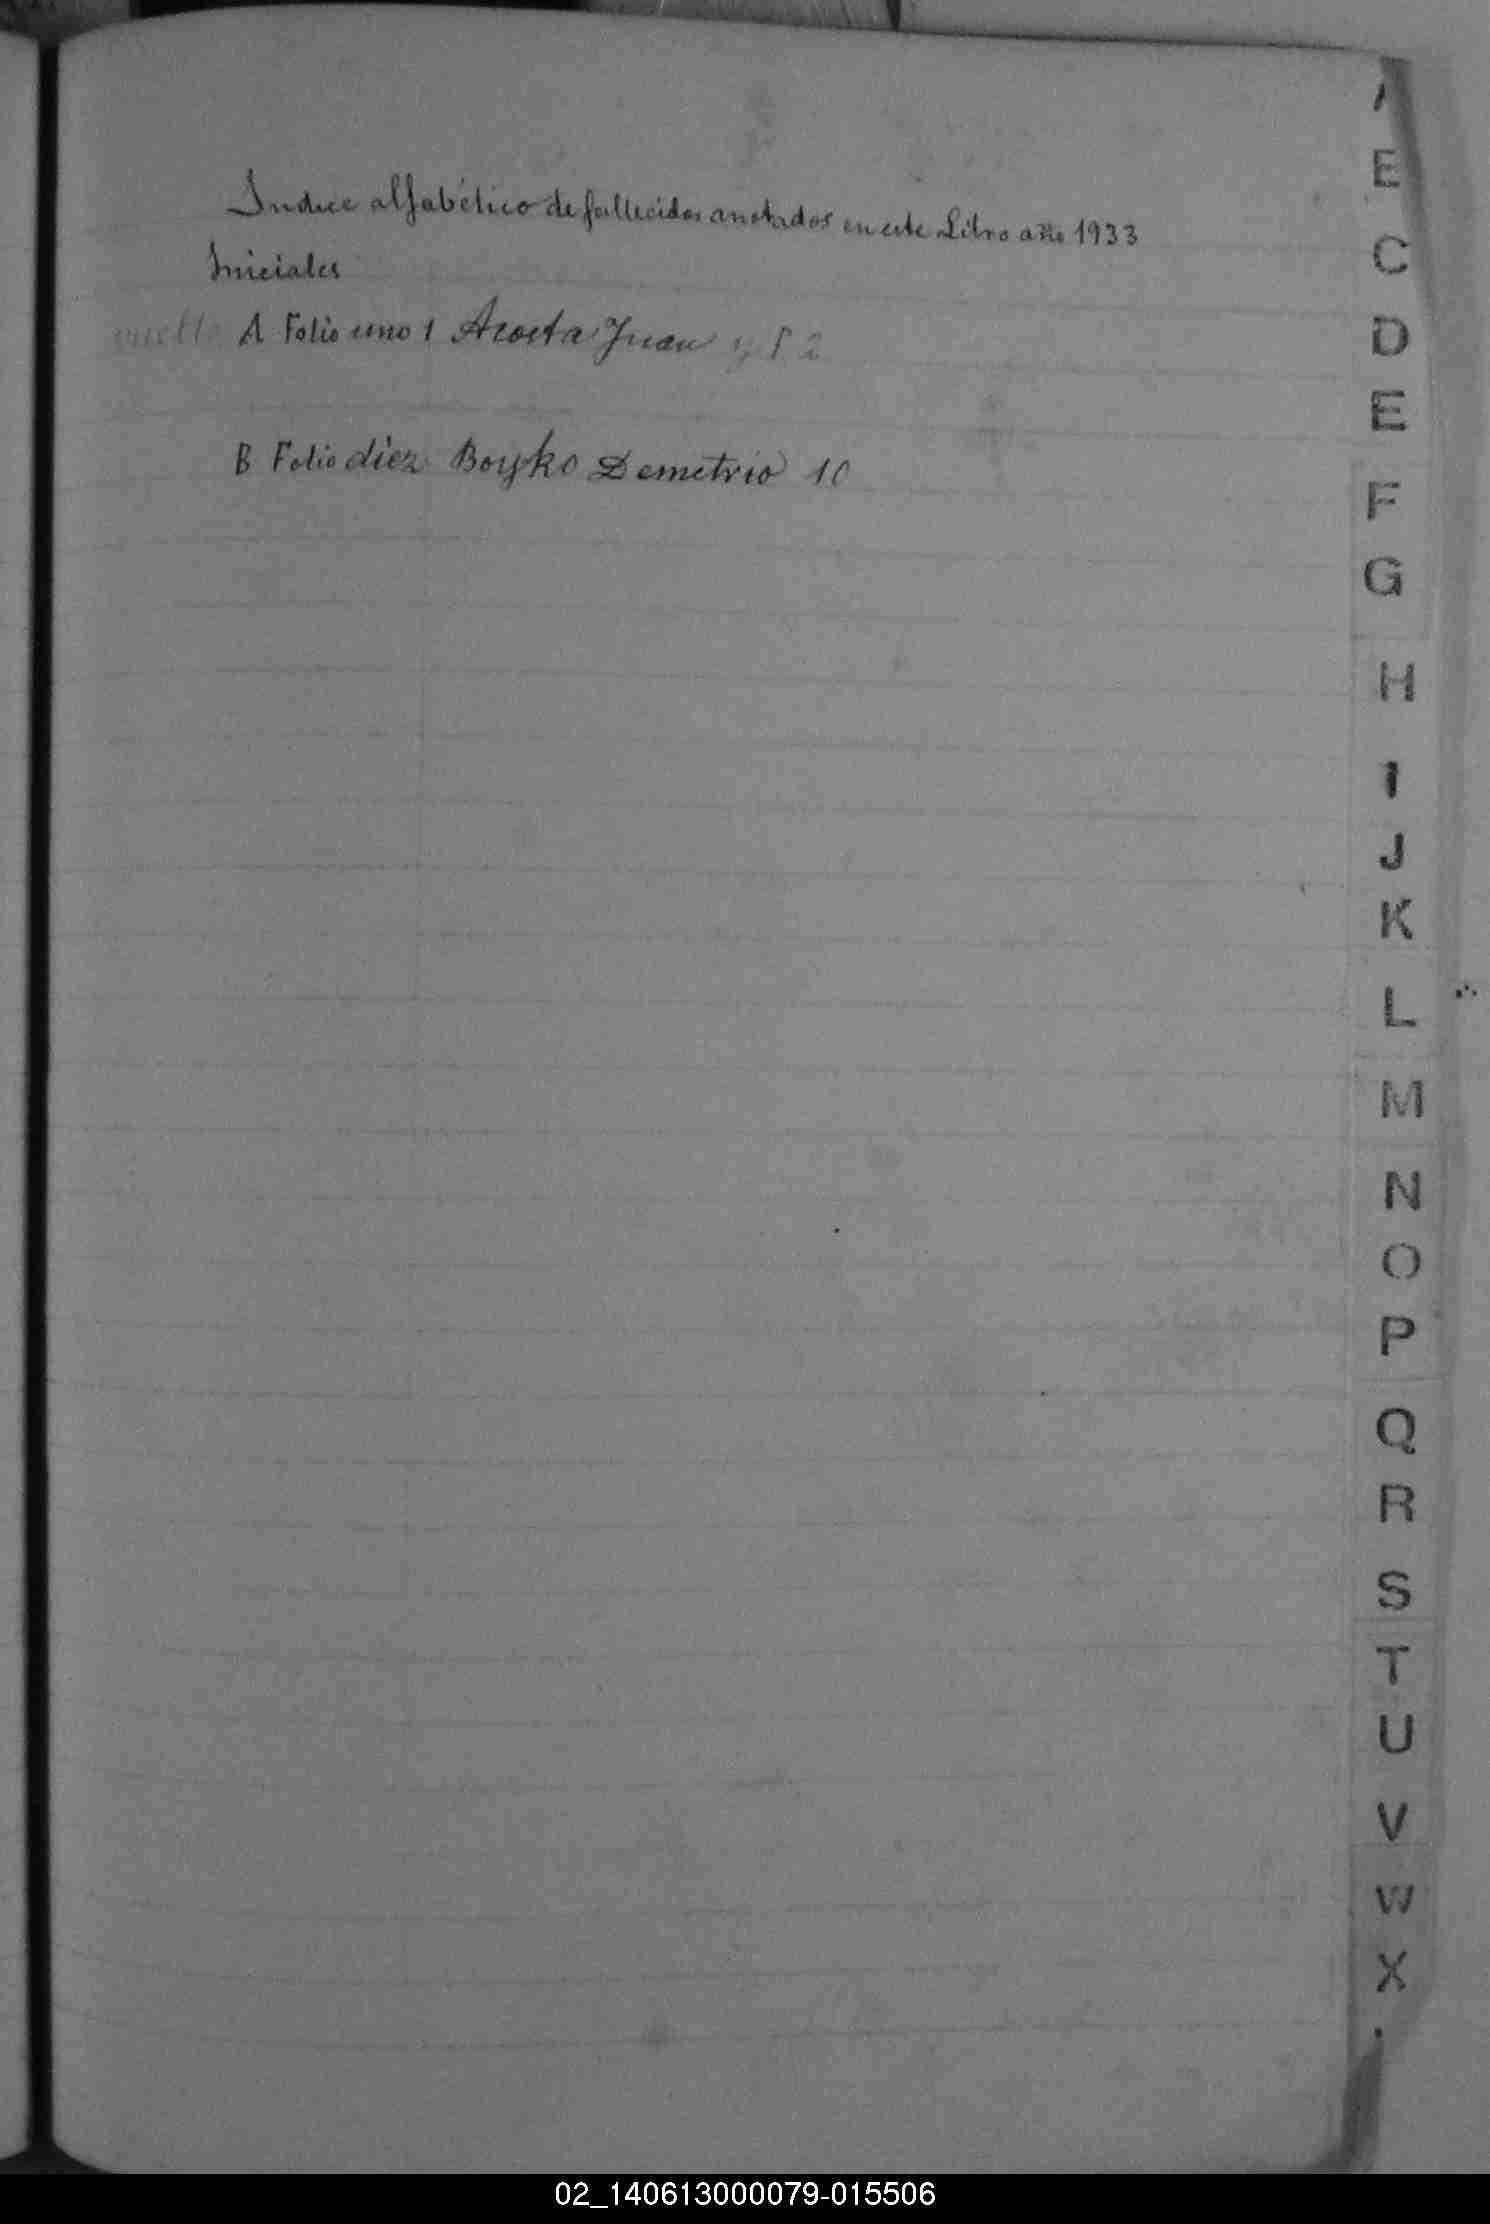 Indice alfabético de fallecidos anotados en este Libro año 1933
Iniciales
vuelto A Folio uno 1 Acosta Juan y f 2
B Folio diez Boyko Demetrio 10
E
C
D
E
F
G
H
I
J
K
L
M
N
O
P
Q
R
S
T
U
V
W
X
02_140613000079-015506